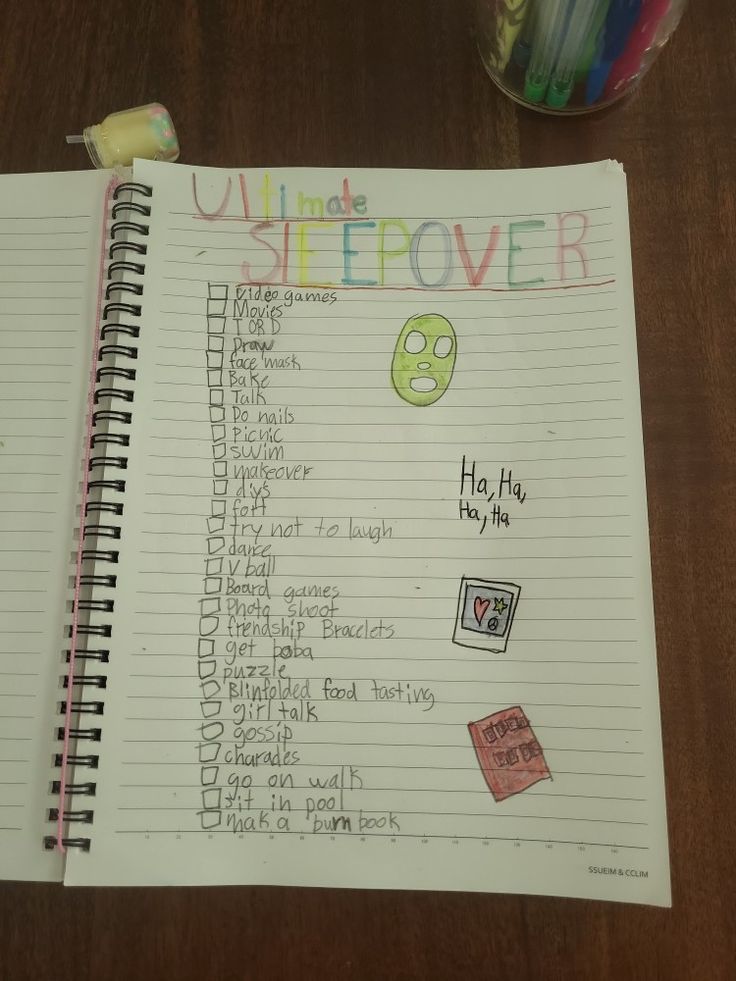 Ultimate
SLEEPOVER
Video games
Movies
T OR D
Draw
face mask
Bake
Talk
Do nails
Picnic
swim
makeover
diys
fort
try not to laugh
dance
V ball
Board games
Photo shoot
frendship Bracelets
get boba
puzzle
Blinfolded food tasting
girl talk
gossip
charades
go on walk
sit in pool
mak a burn book
Ha, Ha,
Ha, Ha
SSUEIM & CCLIM